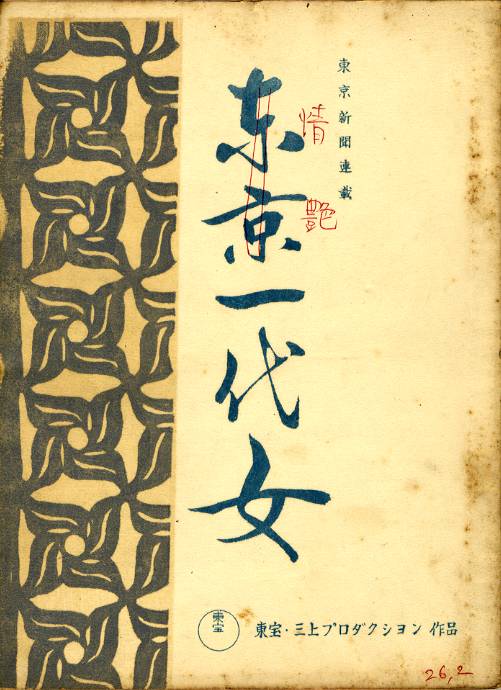 東京新聞連載
情艶
东京一代女
東宝
東宝・三上プロダクション 作品
26,2